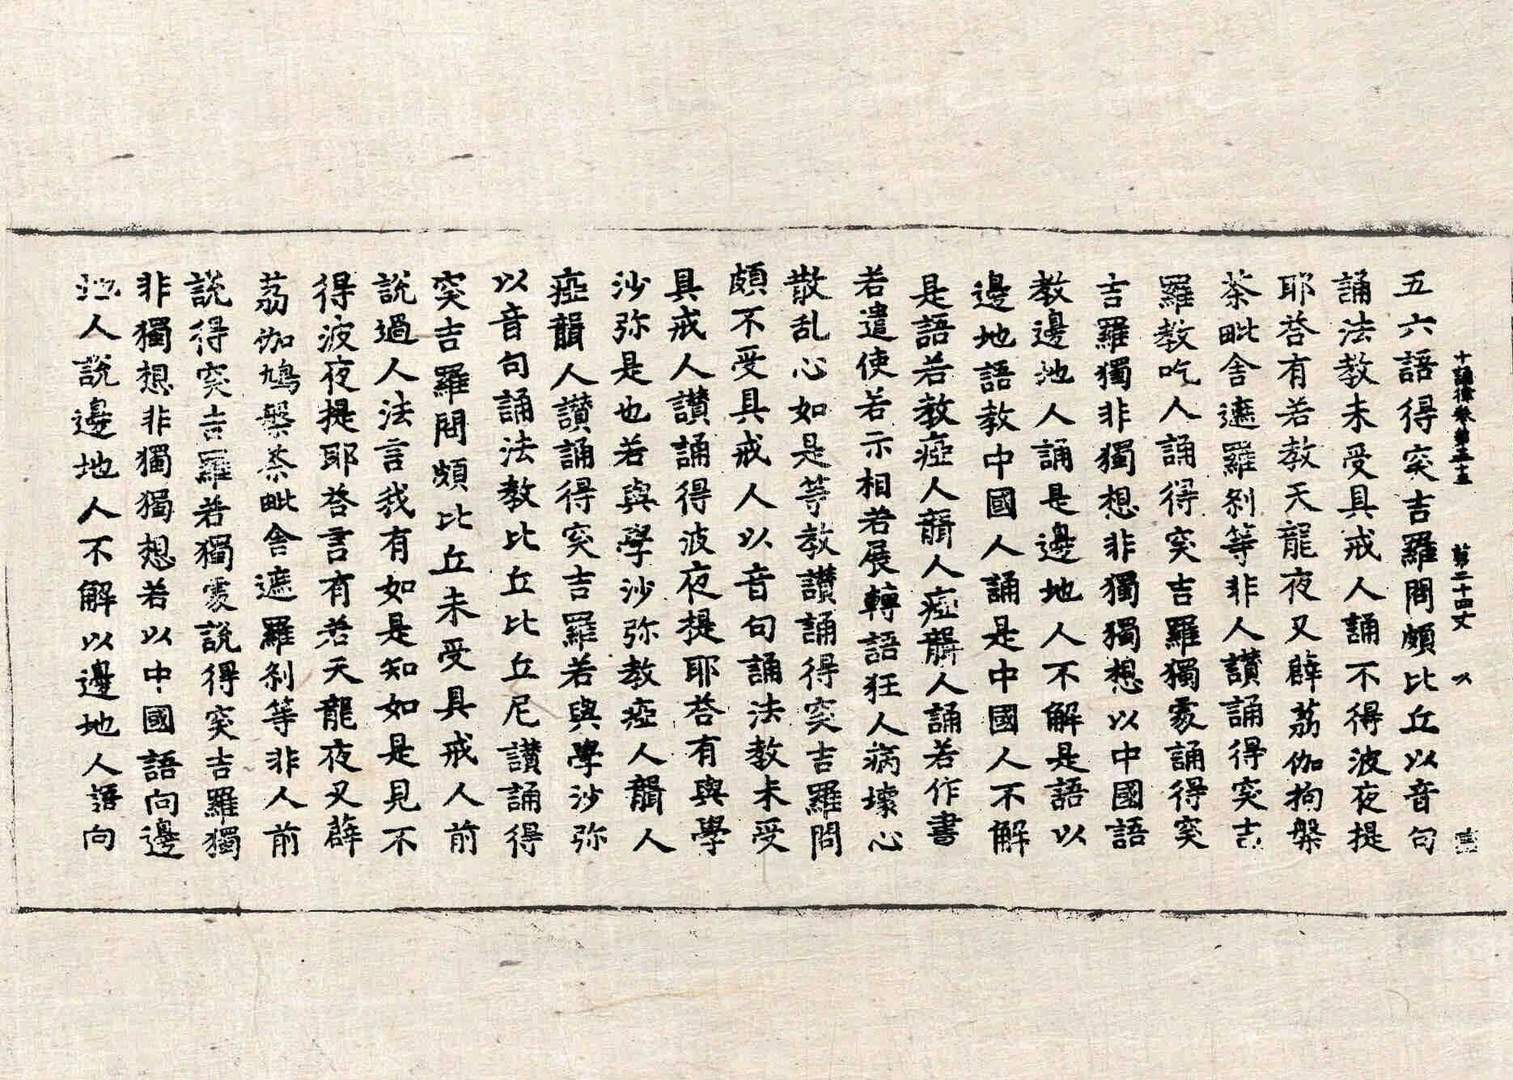 十誦律卷第五十三 第二十四丈 以
五六語得突吉羅問頗比丘以音句
誦法教未受具戒人誦不得波夜提
耶荅有若教天龍夜叉薜荔伽拘槃
茶毗舍遮羅剎等非人讚誦得突吉
羅教吃人誦得突吉羅獨處誦得突
吉羅獨非獨想非獨獨想以中國語
教邊地人誦是邊地人不解是語以
邊地語教中國人誦是中國人不解
是語若教瘂人聾人瘂聾人誦若作書
若遣使若示相若展轉語狂人病壞心
散乱心如是等教讚誦得突吉羅問
頗不受具戒人以音句誦法教未受
具戒人讚誦得波夜提耶荅有與學
沙弥是也若與學沙弥教瘂人聾人
瘂聾人讚誦得突吉羅若與學沙弥
以音句誦法教比丘比丘尼讚誦得
突吉羅問頗比丘未受具戒人前
說過人法言我有如是知如是見不
得波夜提耶荅言有若天龍夜叉薜
荔伽鳩槃茶毗舍遮羅剎等非人前
說得突吉羅若獨處說得突吉羅獨
非獨想非獨獨想若以中國語向邊
地人說邊地人不解以邊地人語向